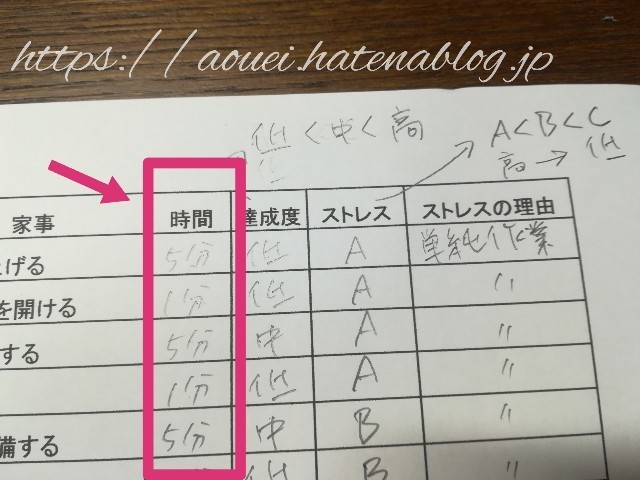 https://aouei.hatenablog.jp
低<中<高
A<B<C
高→低
家事 時間 達成度 ストレス ストレスの理由
上げる 5分 低 A 単純作業
を開ける 1分 低 A 〃
する 5分 中 A 〃
1分 低 A 〃
備する 5分 中 B 〃
低 B 〃